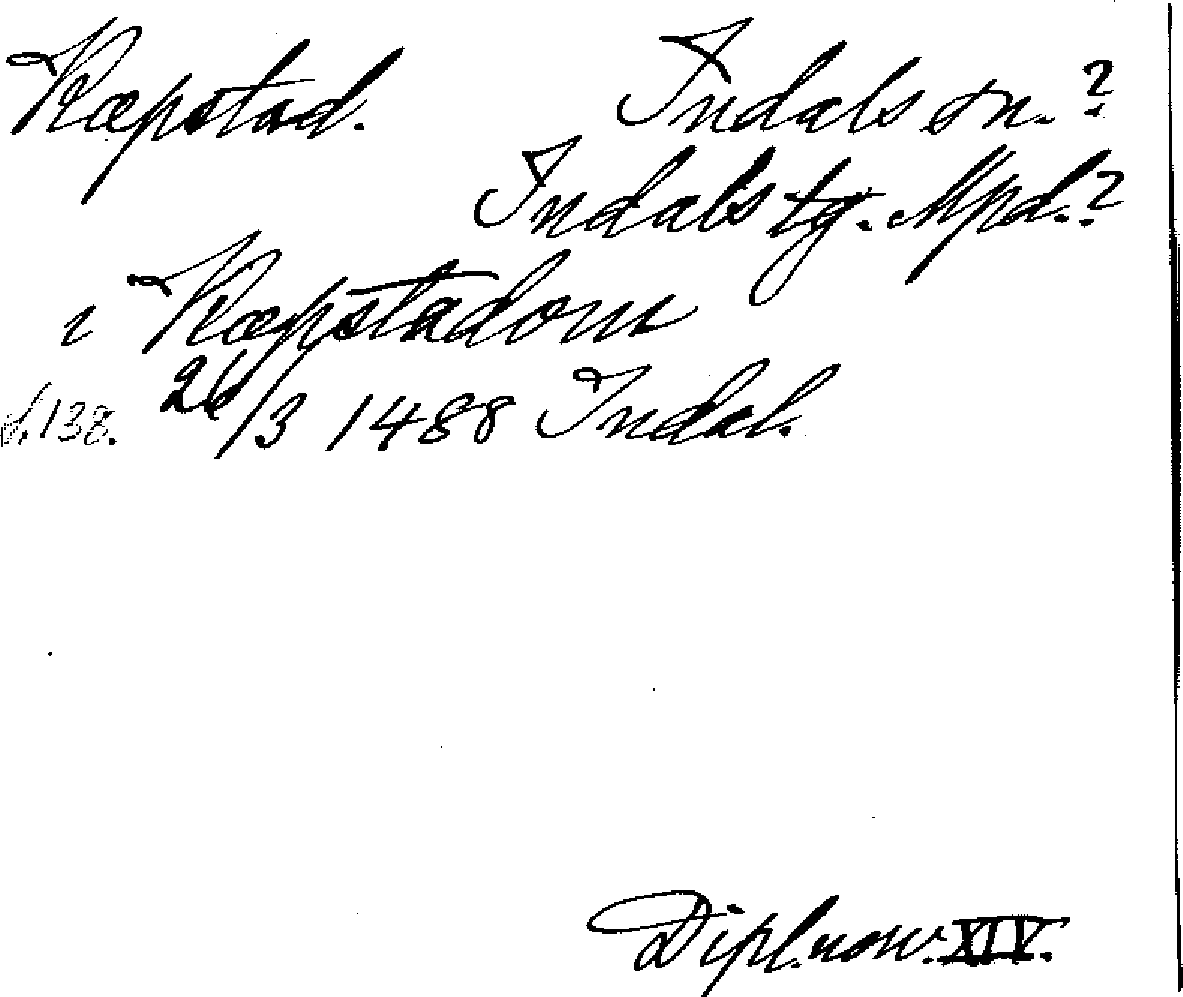 Ræpstad. Indals sn.?
Indals tg. Mpd.?
i Ræpstadom
s. 138. 26/3 1488 Indal.
Dipl. norv. XIV.